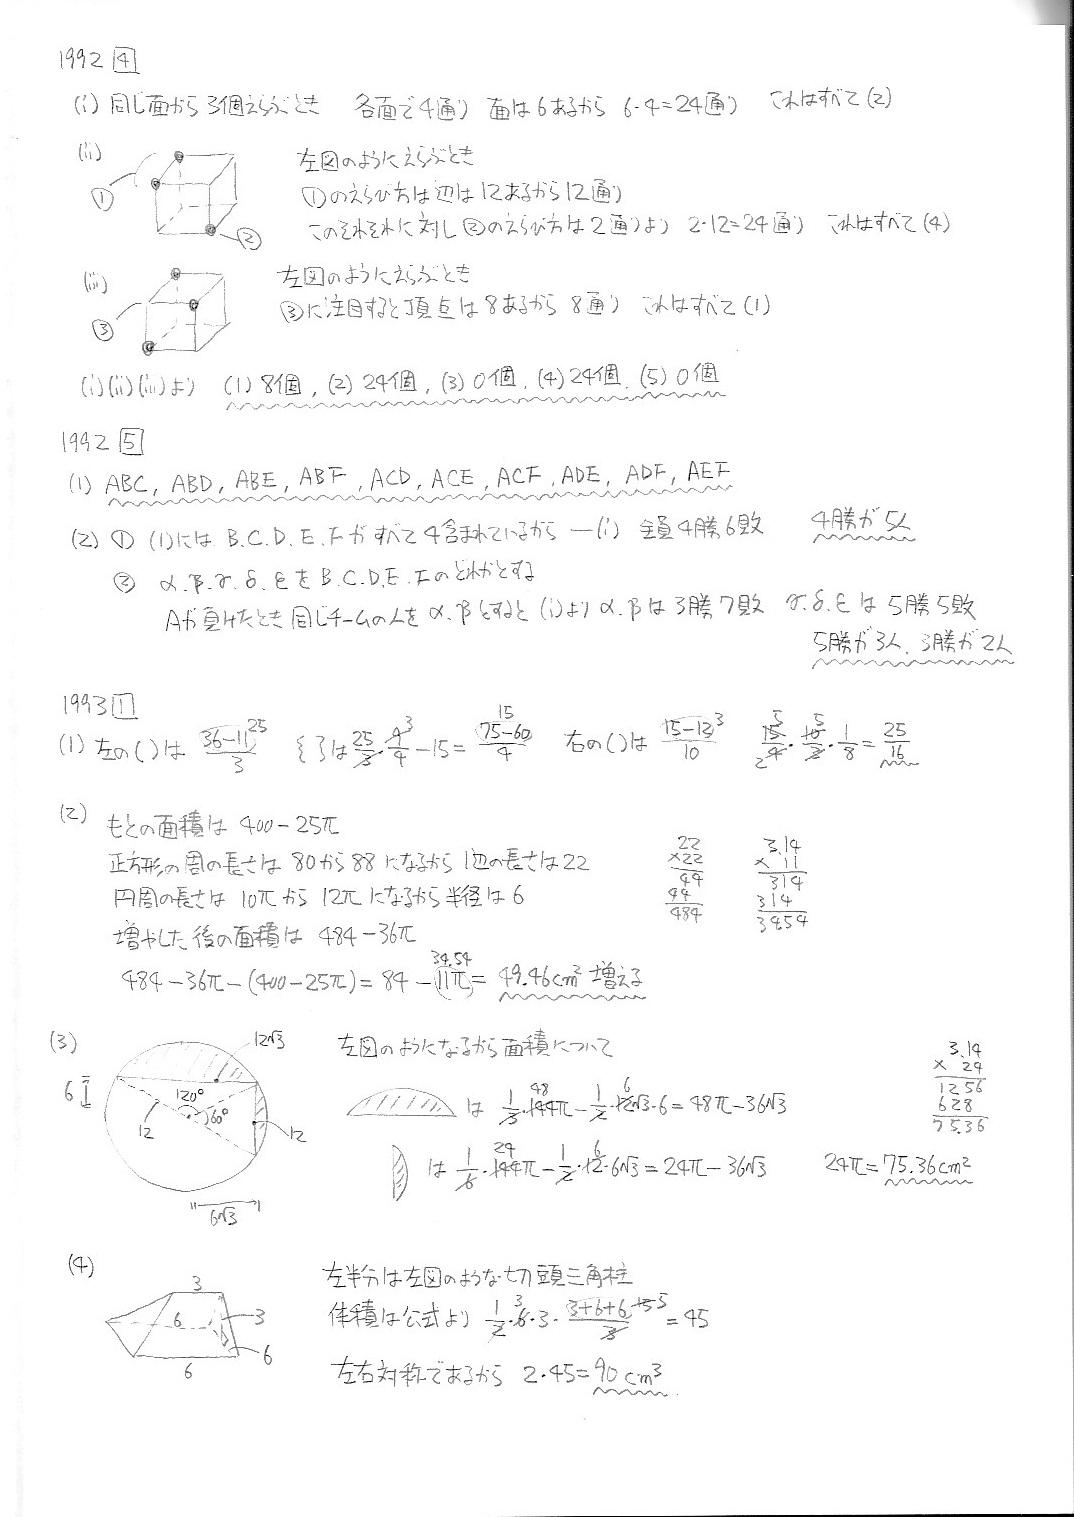 1992 4
(i) 同じ面から3個えらぶとき 各面で4通り 面は6あるから 6・4=24通り これはすべて(2)
(ii) 左図のようにえらぶとき
① ①のえらび方は辺は12あるから12通り
② このそれぞれに対し②のえらび方は2通りより 2・12=24通り これはすべて(4)
(iii) 左図のようにえらぶとき
③ ③に注目すると頂点は8あるから 8通り これはすべて(1)
(i)(ii)(iii)より (1) 8個, (2) 24個, (3) 0個, (4) 24個, (5) 0個
1992 5
(1) ABC, ABD, ABE, ABF, ACD, ACE, ACF, ADE, ADF, AEF
(2) ① (1)には B.C.D.E.Fがすべて4含まれているから ―(i) 全員4勝6敗 4勝が5人
② α.β.γ.δ.εをB.C.D.E.Fのどれかとする
Aが負けたとき同じチームの人をα.βとすると(i)よりα.βは3勝7敗 γ.δ.εは5勝5敗
5勝が3人、3勝が2人
1993 1
(1) 左の( )は 36-11/3 25 { }は 25/3・9/4 3 -15= 75-60/4 15 右の( )は 15-12/10 3 15/4・10/2・1/8=25/16 5 5 2
(2) もとの面積は 400-25π
正方形の周の長さは 80から88になるから1辺の長さは22
円周の長さは 10πから 12πになるから半径は6
増やした後の面積は 484-36π
484-36π-(400-25π)=84-11π= 49.46cm² 増える
34.54
22
×22
44
44
484
3.14
× 11
314
314
3454
(3) 12√3 左図のようになるから面積について
6 120° 60° 12 12
6√3
は 1/3・144π-1/2・12√3・6=48π-36√3
48 6
は 1/6・144π-1/2・12・6√3=24π-36√3 24π=75.36cm²
24 6
3.14
× 24
1256
628
75.36
(4) 3 左半分は左図のような切頭三角柱
6 3 体積は公式より 1/2・6・3・3+6+6/3=45
3 15 5
6 6
左右対称であるから 2・45=90cm³